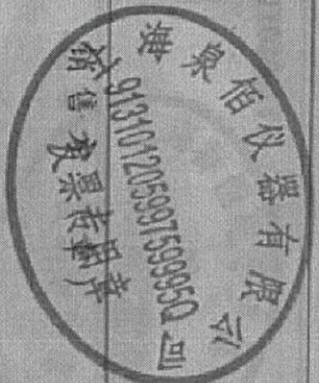 上海泉佰仪器有限公司
91310120599759995Q
销售发票专用章